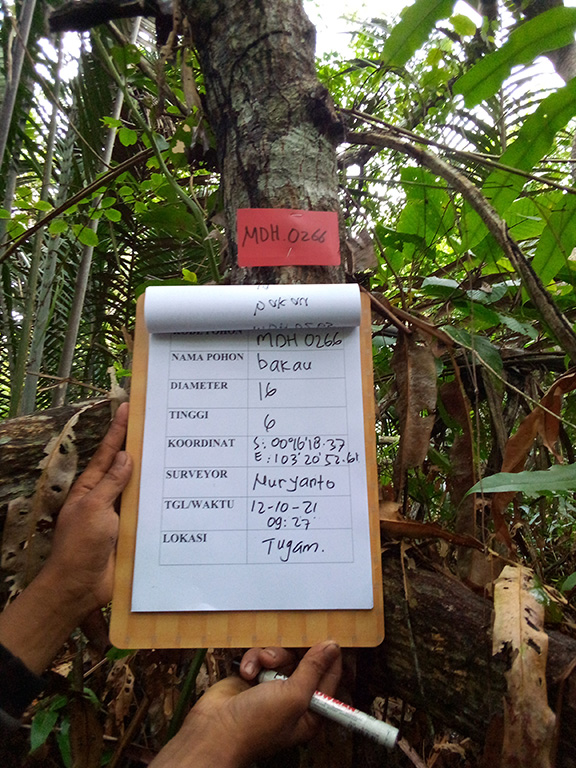 MDH.0266
pakau
MDH 0266
NAMA POHON bakau
DIAMETER 16
TINGGI 6
KOORDINAT S: 00°16'18.37
E: 103°20'52.61
SURVEYOR Nuryanto
TGL/WAKTU 12-10-21
09:27
LOKASI Tugam.